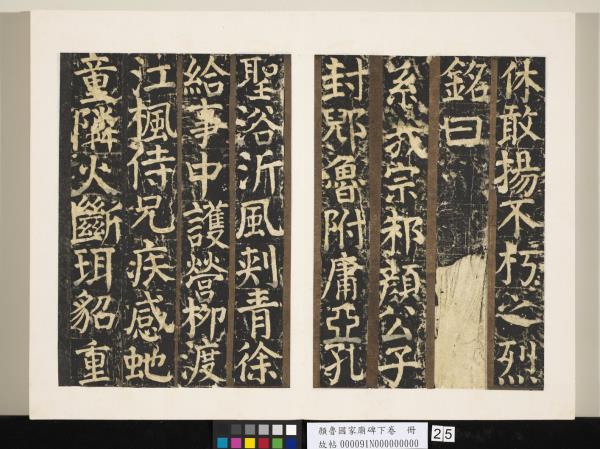 休敢揚不朽之烈
銘曰
系我宗邾顏公子
封郳魯附庸亞孔
聖浴沂風刾青徐
給事中護營柳渡
江楓侍兄疾感虵
童隣火斷珥貂重
顏魯國家廟碑下卷 冊
故帖 000091N000000000
25